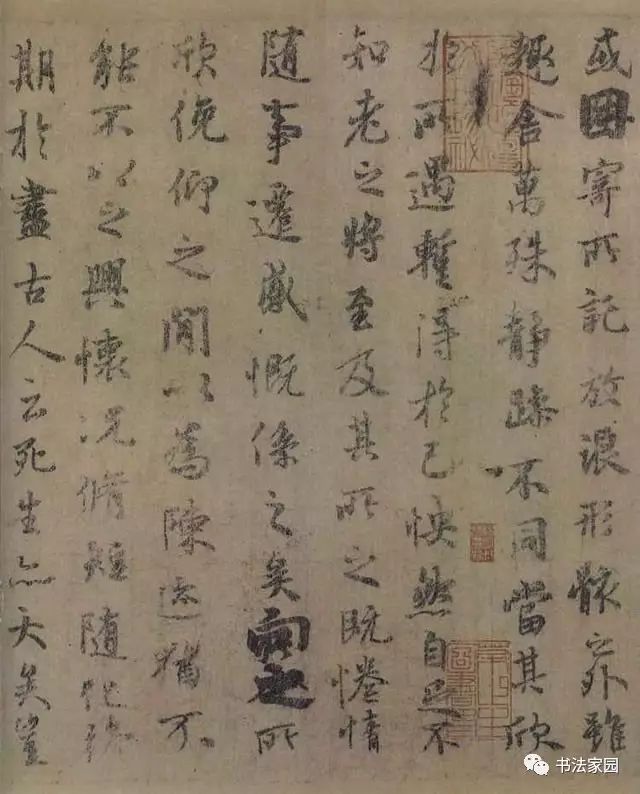 或因寄所託放浪形骸之外雖
趣舍萬殊静躁不同當其欣
於所遇暫得於己怏然自足不
知老之將至及其所之既惓情
隨事遷感慨係之矣向之所
欣俛仰之閒以爲陳迹猶不
能不以之興懷况脩短隨化終
期於盡古人云死生亦大矣豈
书法家园